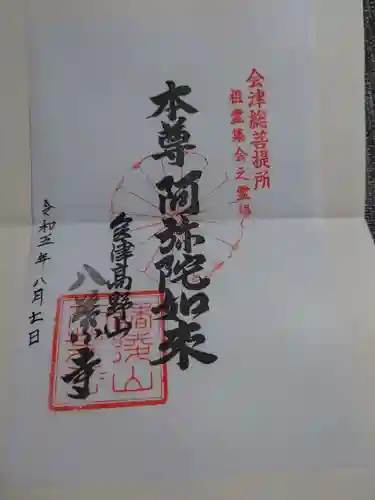 会津総菩提所
祖霊集会之霊場
本尊 阿弥陀如来
会津高野山
八葉寺
令和五年八月十一日